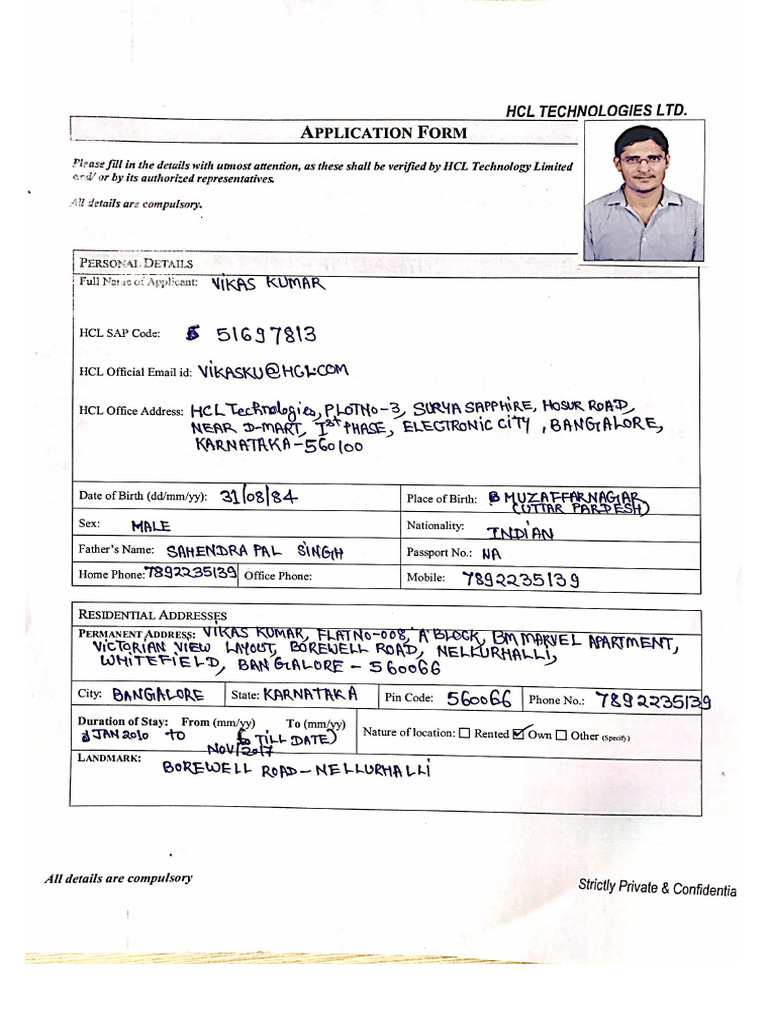 HCL TECHNOLOGIES LTD.
APPLICATION FORM
Please fill in the details with utmost attention, as these shall be verified by HCL Technology Limited
and/ or by its authorized representatives.
All details are compulsory.
PERSONAL DETAILS
Full Name of Applicant: VIKAS KUMAR
HCL SAP Code: 51697813
HCL Official Email id: VIKASKU@HCL.COM
HCL Office Address: HCL Technologies, PLOTNO-3, SURYA SAPPHIRE, HOSUR ROAD,
NEAR D-MART, Ist PHASE, ELECTRONIC CITY, BANGALORE,
KARNATAKA-560100
Date of Birth (dd/mm/yy): 31/08/84 Place of Birth: MUZAFFARNAGAR
(UTTAR PARDESH)
Sex: MALE Nationality: INDIAN
Father's Name: SAHENDRA PAL SINGH Passport No.: NA
Home Phone: 7892235139 Office Phone: Mobile: 7892235139
RESIDENTIAL ADDRESSES
PERMANENT ADDRESS: VIKAS KUMAR, FLATNO-008, 'A' BLOCK, BM MARVEL APARTMENT,
VICTORIAN VIEW LAYOUT, BOREWELL ROAD, NELLURHALLI,
WHITEFIELD, BANGALORE - 560066
City: BANGALORE State: KARNATAKA Pin Code: 560066 Phone No.: 7892235139
Duration of Stay: From (mm/yy) To (mm/yy) Nature of location: ☐ Rented ☑ Own ☐ Other (Specify)
JAN 2010 TO (TILL DATE)
NOV/2017
LANDMARK: BOREWELL ROAD-NELLURHALLI
All details are compulsory Strictly Private & Confidentia